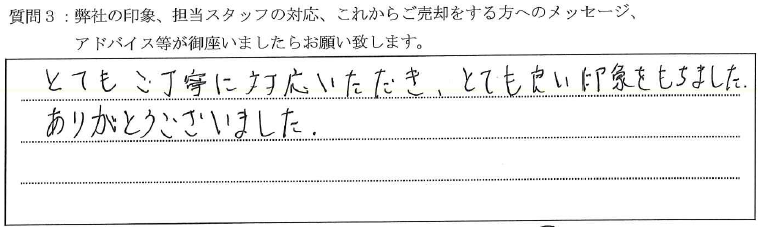 質問3：弊社の印象、担当スタッフの対応、これからご売却をする方へのメッセージ、
アドバイス等が御座いましたらお願い致します。
とてもご丁寧に対応いただき、とても良い印象をもちました.
ありがとうございました.